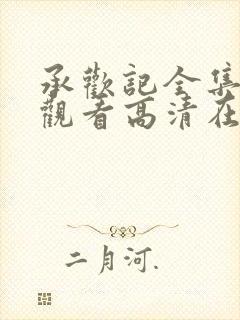 承歡記全集
觀看高清在
二月河.